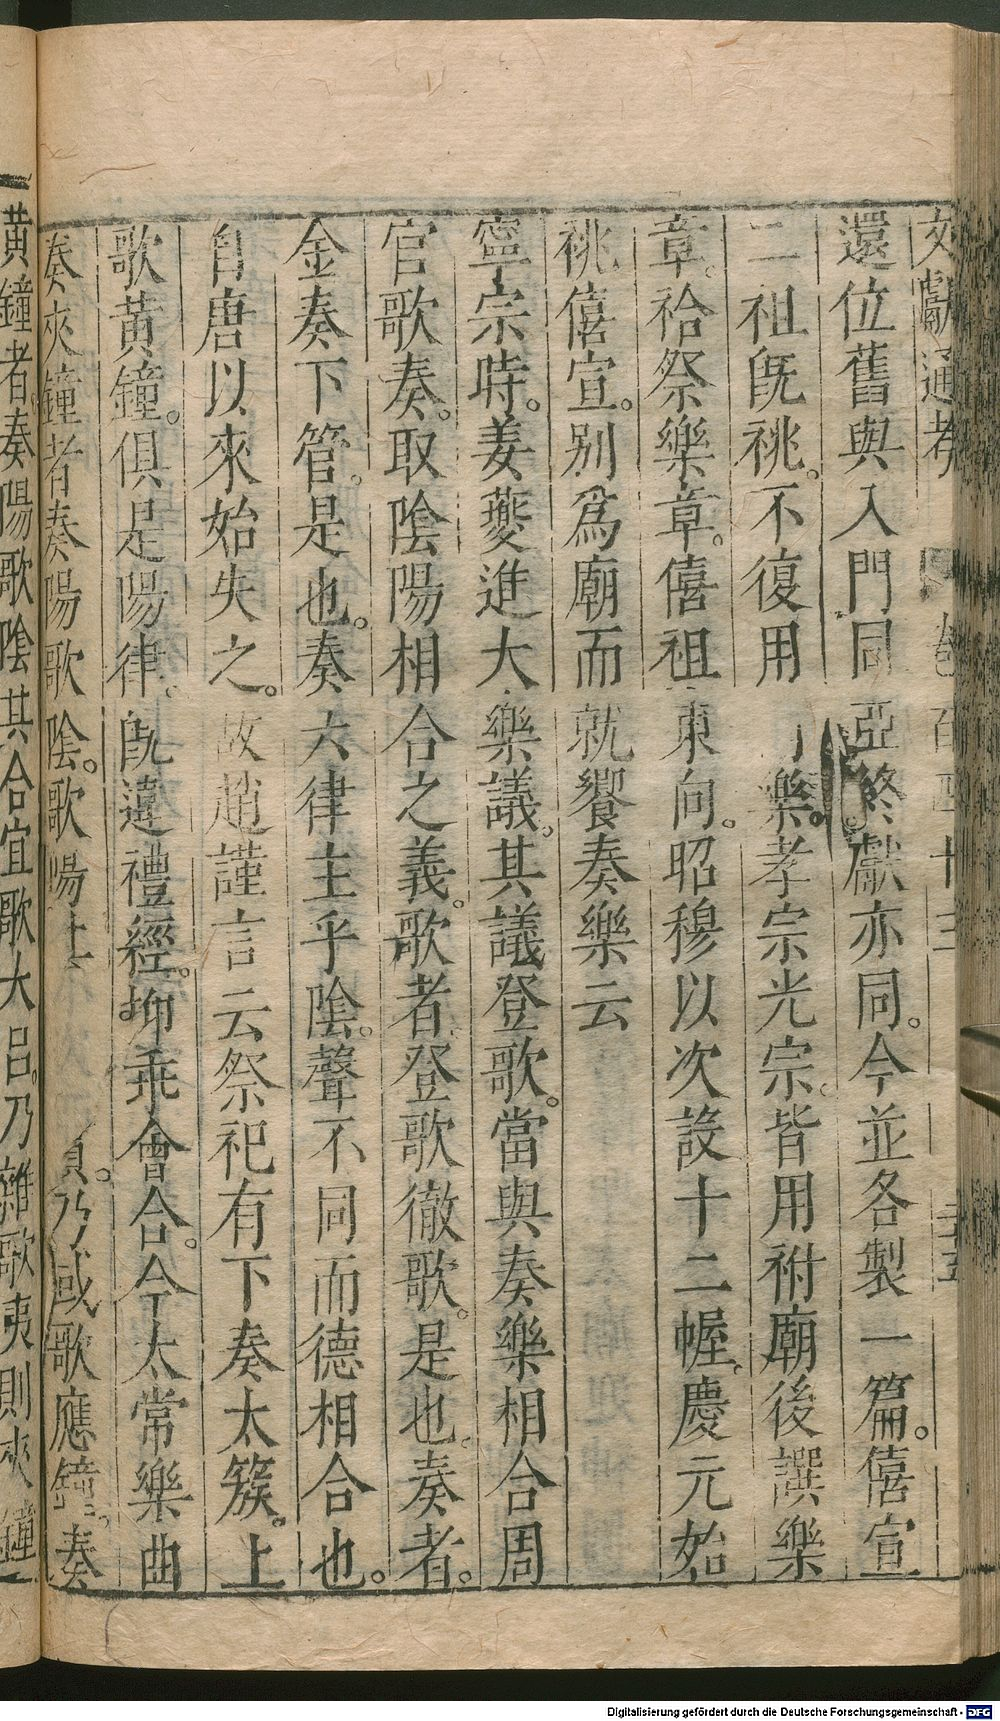 文獻通考 卷百四十三 三五
還位舊與入門同亞終獻亦同。今並各製一篇。僖宣
二祖旣祧。不復用樂。孝宗光宗。皆用祔廟後譔樂
章。祫祭樂章。僖祖東向。昭穆以次設十二幄。慶元始
祧僖宣。别爲廟而就饗奏樂云
寧宗時。姜夔進大樂議。其議登歌。當與奏樂相合周
官歌奏。取陰陽相合之義。歌者。登歌徹歌。是也。奏者。
金奏下管。是也。奏六律主乎陰。聲不同而德相合也。
自唐以來始失之。故趙謹言云祭祀有下奏太簇。上
歌黃鐘。俱是陽律。旣違禮經。抑乖會合。今太常樂曲
奏夾鐘者奏陽歌陰。歌陽 乃或歌應鐘。奏
黃鐘者奏陽歌陰其合宜歌大呂。乃雜歌夷則夾鐘
Digitalisierung gefördert durch die Deutsche Forschungsgemeinschaft - DFG